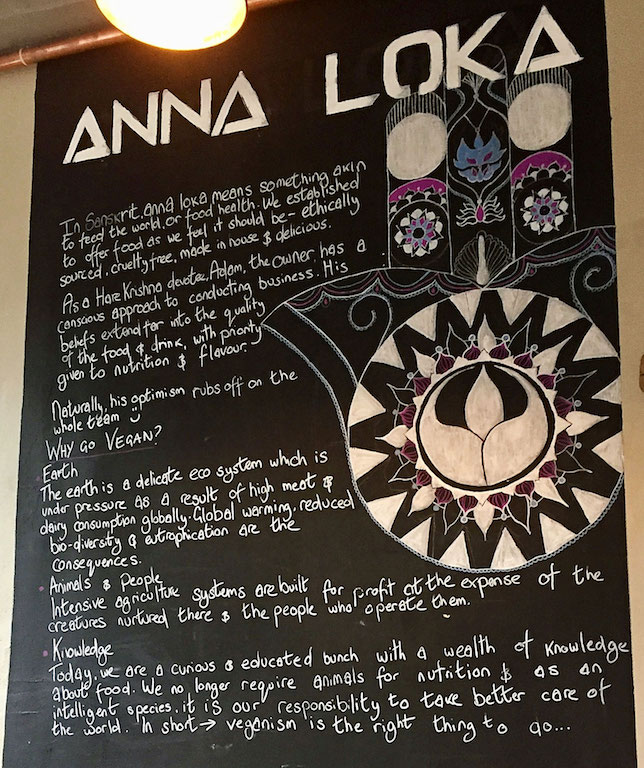 ANNA LOKA
In Sanskrit, anna loka means something akin
to feed the world, or food health. We established
to offer food as we feel it should be - ethically
sourced, cruelty-free, made in house & delicious.
As a Hare Krishna devotee, Adam, the owner has a
conscious approach to conducting business. His
beliefs extend far into the quality
of the food & drink, with priority
given to nutrition & flavour.
Naturally, his optimism rubs off on the
whole team :)
WHY GO VEGAN?
Earth
The earth is a delicate eco system which is
under pressure as a result of high meat &
dairy consumption globally. Global warming, reduced
bio-diversity & eutrophication are the
consequences.
· Animals & People
Intensive agriculture systems are built for profit at the expense of the
creatures nurtured there & the people who operate them.
· Knowledge
Today, we are a curious & educated bunch with a wealth of knowledge
about food. We no longer require animals for nutrition & as an
intelligent species, it is our responsibility to take better care of
the world. In short → veganism is the right thing to do...